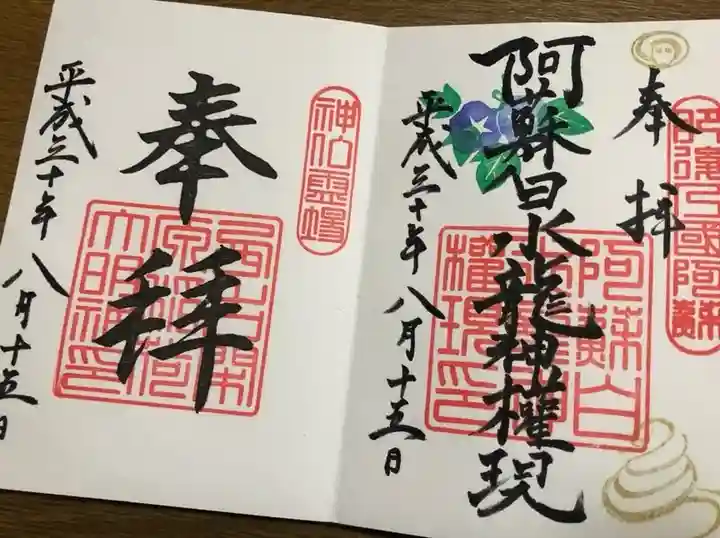 奉拝
阿蘇白水龍神權現
平成三十年八月十五日
阿蘇白水龍神權現印
神仏霊場
奉拝
平成三十年八月十五日